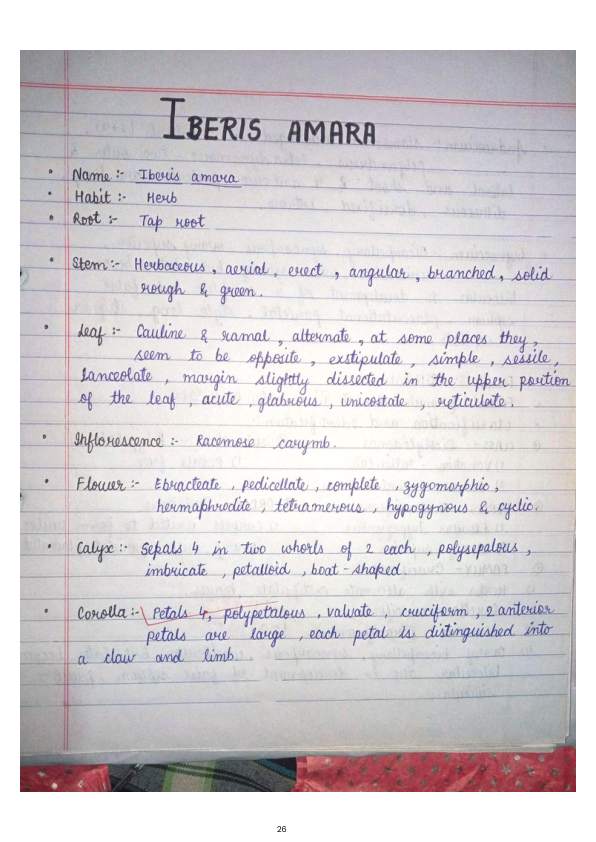 IBERIS AMARA
• Name :- Iberis amara
• Habit :- Herb
• Root :- Tap root
• Stem :- Herbaceous, aerial, erect, angular, branched, solid
rough & green.
• Leaf :- Cauline & ramal, alternate, at some places they,
seem to be opposite, exstipulate, simple, sessile,
Lanceolate, margin slightly dissected in the upper portion
of the leaf, acute, glabrous, unicostate, reticulate.
• Inflorescence :- Racemose corymb.
• Flower :- Ebracteate, pedicellate, complete, zygomorphic,
hermaphrodite, tetramerous, hypogynous & cyclic.
• Calyx :- Sepals 4 in two whorls of 2 each, polysepalous,
imbricate, petalloid, boat-shaped.
• Corolla :- Petals 4, polypetalous, valvate, cruciform, 2 anterior
petals are large, each petal is distinguished into
a claw and limb.
26